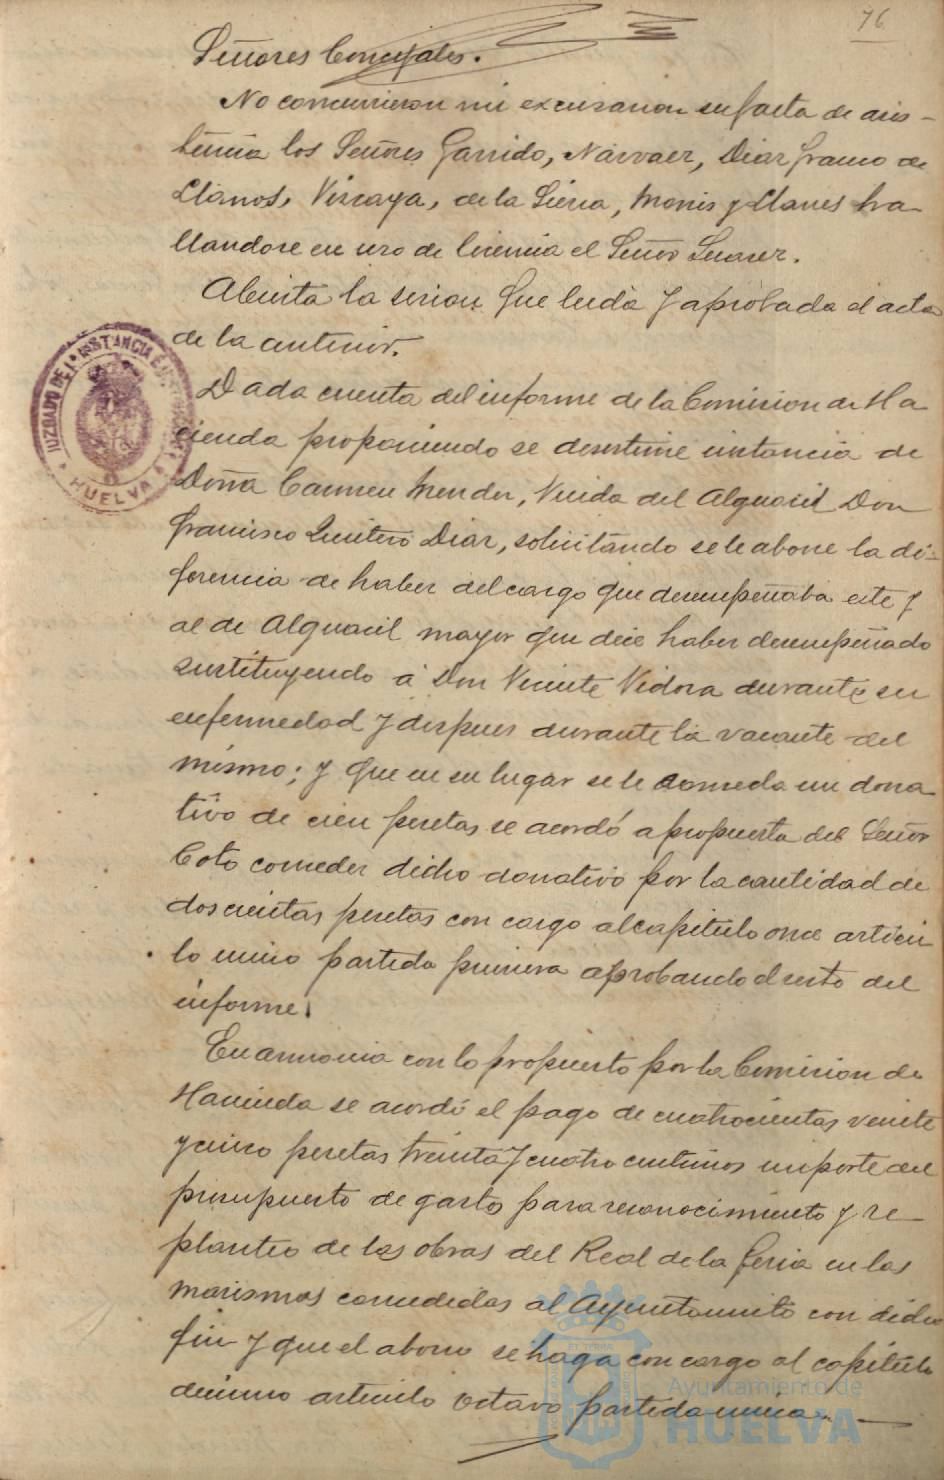 76
Señores Concejales.
No concurrieron ni excusaron su falta de asis-
tencia los Señores Garrido, Narvaez, Diaz Franco de
Llanos, Vizcaya, de la Sierra, Monis y Llanes ha-
llandose en uso de licencia el Señor Suarez.
Abierta la sesion fue leida y aprobada el acta
de la anterior.
Dada cuenta del informe de la Comision de Ha
cienda proponiendo se desestime instancia de
Doña Carmen Mendez, Viuda del Alguacil Don
Francisco Quintero Diaz, solicitando se le abone la di-
ferencia de haber del cargo que desempeñaba este y
al de Alguacil mayor que dice haber desempeñado
sustituyendo á Don Vicente Vidosa durante su
enfermedad y despues durante la vacante del
mismo; y que en su lugar se le conceda un dona
tivo de cien pesetas se acordó a propuesta del Señor
Coto conceder dicho donativo por la cantidad de
doscientas pesetas con cargo al capitulo once articu
lo unico partida primera aprobando el resto del
informe.
En armonia con lo propuesto por la Comision de
Hacienda se acordó el pago de cuatrocientas veinte
y cinco pesetas treinta y cuatro centimos importe del
presupuesto de gasto para reconocimiento y re-
planteo de las obras del Real de la feria en las
marismas concedidas al Ayuntamiento con dicho
fin y que el abono se haga con cargo al capitulo
decimo articulo octavo partida unica.
JUZGADO DE 1ª INSTANCIA É
HUELVA
Ayuntamiento de
HUELVA